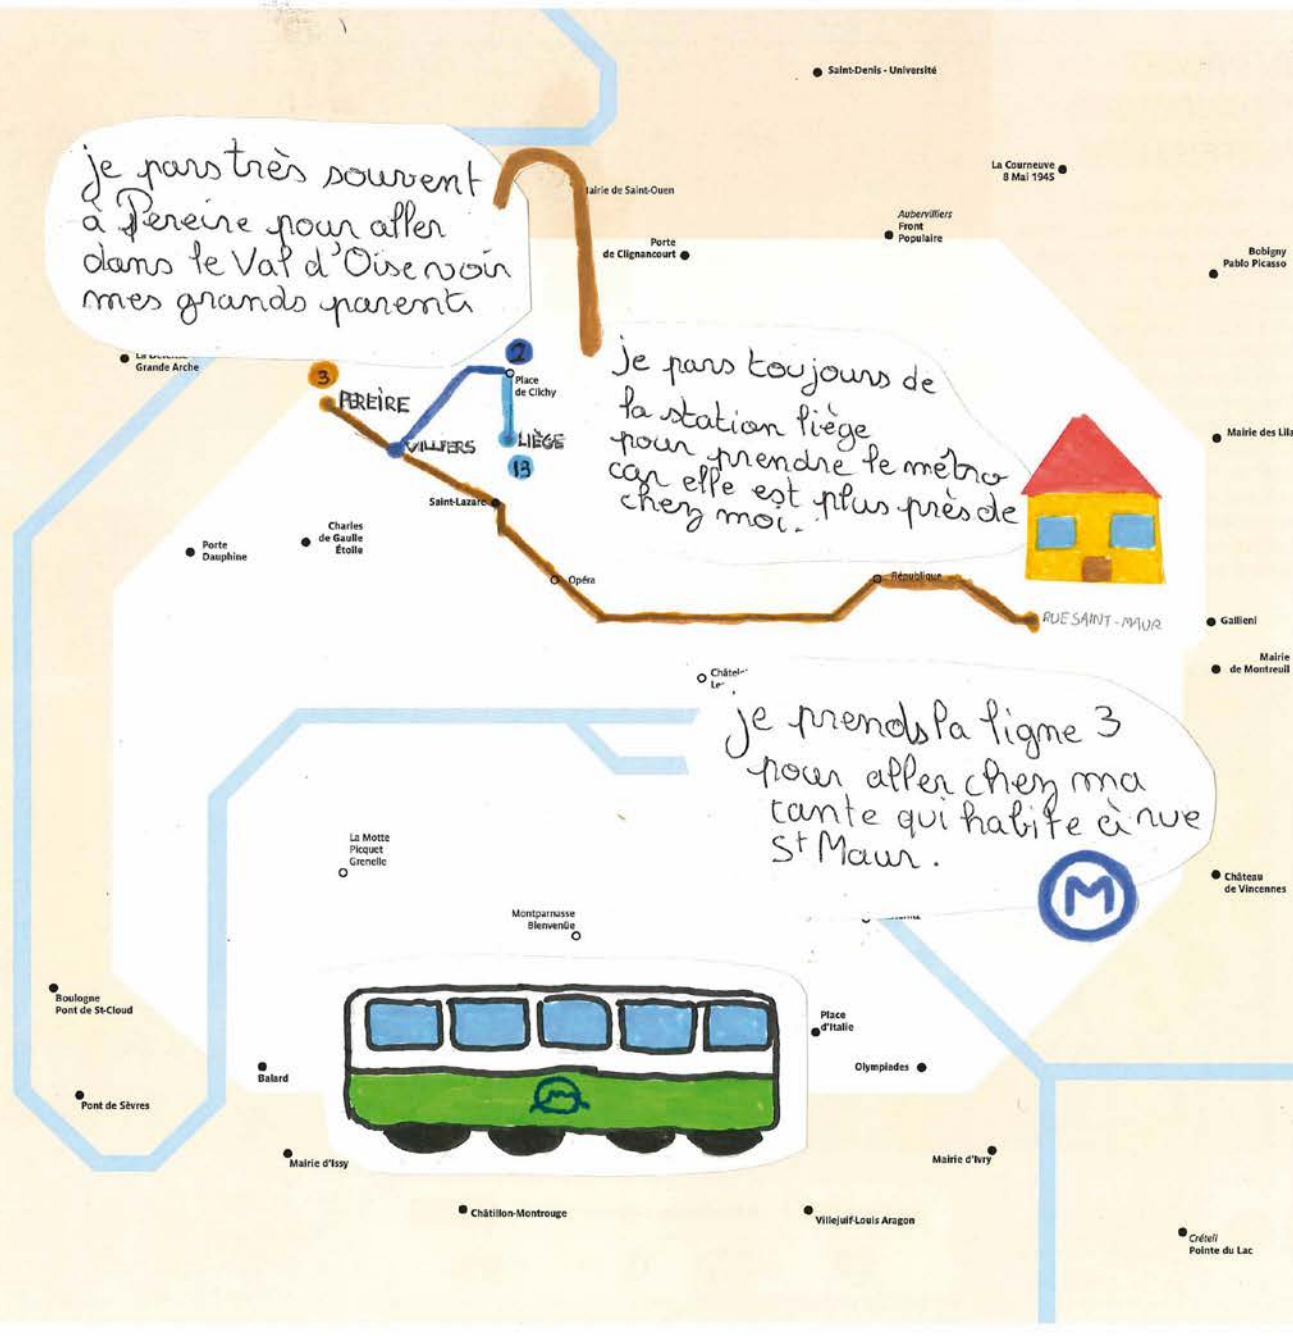 Saint-Denis - Université
La Courneuve
8 Mai 1945
je pars très souvent
à Pereire pour aller
dans le Val d'Oise voir
mes grands parents
Mairie de Saint-Ouen
Aubervilliers
Front
Populaire
Porte
de Clignancourt
Bobigny
Pablo Picasso
La Défense
Grande Arche
3
PEREIRE
2
Place
de Clichy
VILLIERS
LIÈGE
13
je pars toujours de
la station liège
pour prendre le métro
car elle est plus près de
chez moi.
Mairie des Lila
Saint-Lazare
Porte
Dauphine
Charles
de Gaulle
Étoile
Opéra
République
RUE SAINT-MAUR
Gallieni
Mairie
de Montreuil
Châtel
Le
je prends la ligne 3
pour aller chez ma
tante qui habite à rue
St Maur.
M
La Motte
Picquet
Grenelle
Château
de Vincennes
Montparnasse
Bienvenüe
Boulogne
Pont de St-Cloud
Place
d'Italie
Olympiades
Balard
Pont de Sèvres
M
Mairie d'Issy
Mairie d'Ivry
Châtillon-Montrouge
Villejuif-Louis Aragon
Créteil
Pointe du Lac